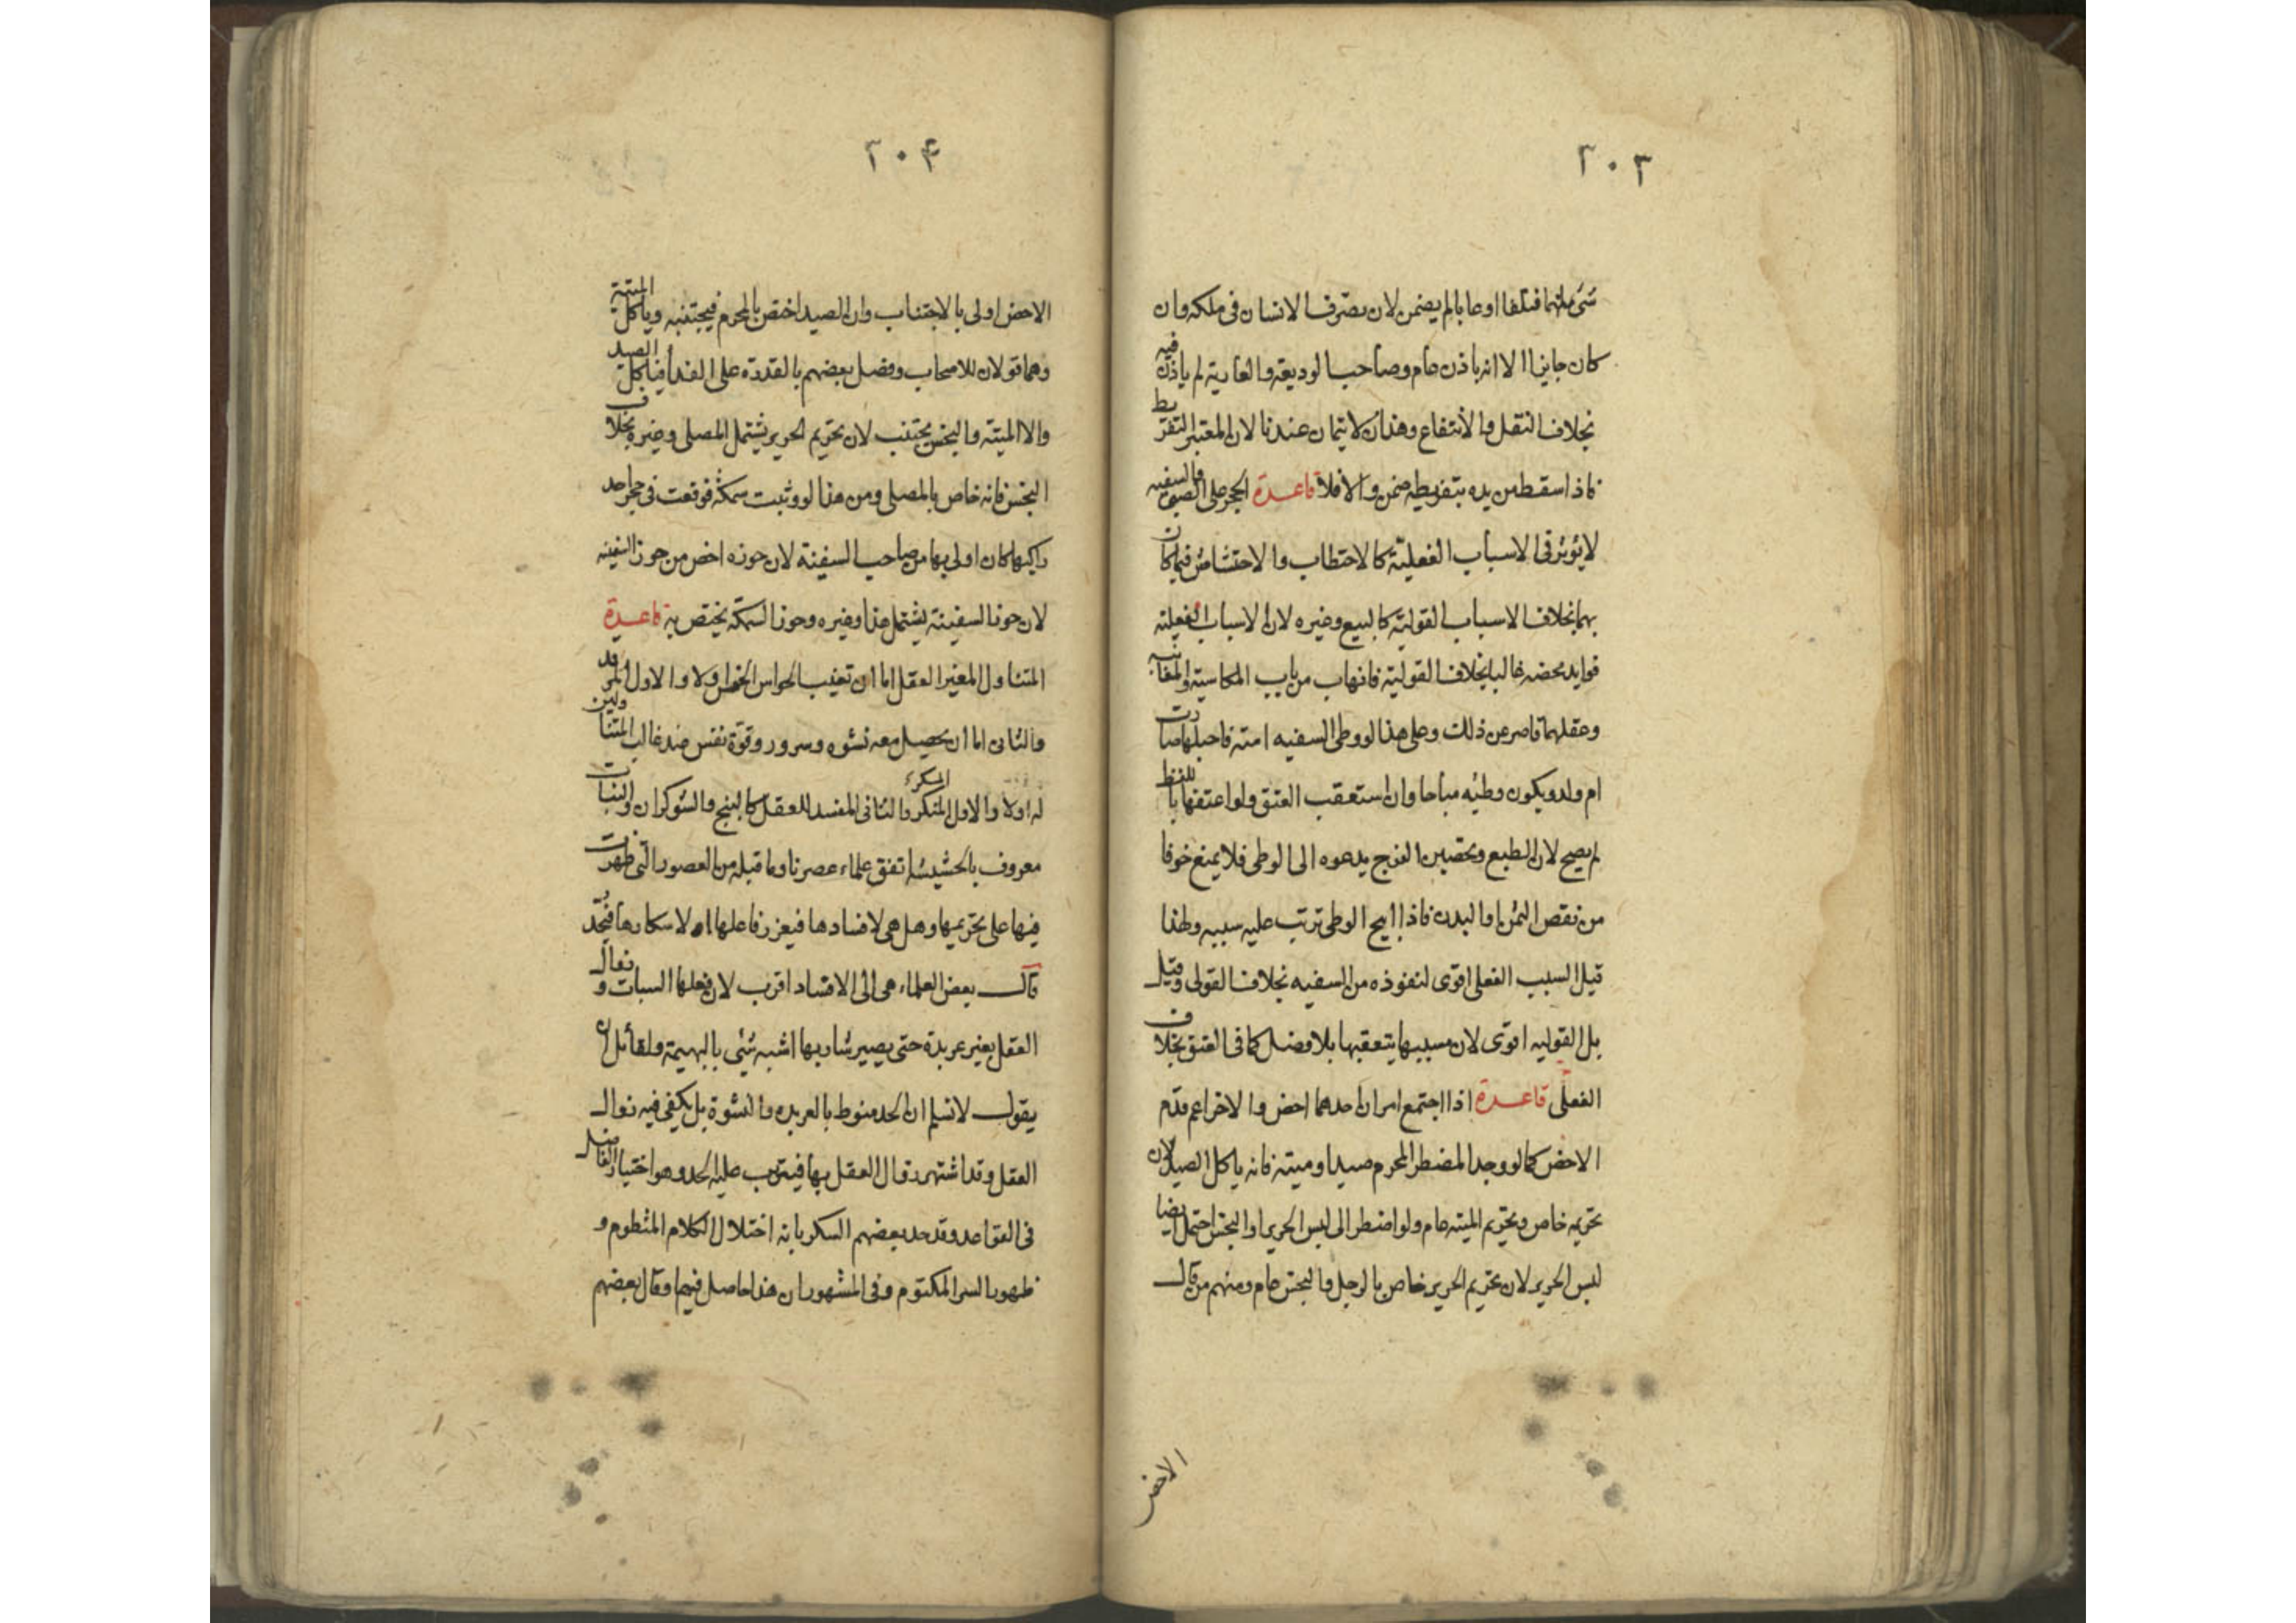 ٢٠٣
شئ منهما فتلفا او عابا لم يضمن لان تصرف الانسان فى ملكه وان
كان جايزا الا انه باذن عام وصاحب الوديعة والعارية لم ياذن فيه
بخلاف النقل والانتفاع وهذان لا يتمان عندنا لان المعتبر التفريط
فاذا سقط من يده بتفريطه ضمن والا فلا قاعدة الحجر على الصبى والسفيه
لا يؤثر فى الاسباب الفعلية كالاحتطاب والاحتشاش فيملكان
بهما بخلاف الاسباب القولية كالبيع وغيره لان الاسباب الفعلية
فوايد محضه غالبا بخلاف القولية فانها من باب المكاسبة والمغابنه
وعقلهما قاصر عن ذلك وعلى هذا لو وطى السفيه امته فاحبلها صارت
ام ولد ويكون وطئه مباحا وان استعقب العتق ولو اعتقها باللفظ
لم يصح لان الطبع وتحصين الفرج يدعوه الى الوطى فلا يمنع خوفا
من نقص الثمن او البدن فاذا ابيح الوطى ترتب عليه سببه ولهذا
قيل السبب الفعلى اقوى لنفوذه من السفيه بخلاف القولى وقيل
بل القوليه اقوى لان مسببها يتعقبها بلا فصل كما فى العتق بخلاف
الفعلى قاعدة اذا اجتمع امران احدهما اخص والاخر اعم قدم
الاخص كما لو وجد المضطر المحرم صيدا وميته فانه ياكل الصيد لان
تحريمه خاص وتحريم الميته عام ولو اضطر الى لبس الحرير او النجس احتمل ايضا
لبس الحرير لان تحريم الحرير خاص بالرجل والنجس عام ومنهم من قال
الاخص
٢٠۴
الاخص اولى بالاجتناب وان الصيد اختص بالمحرم فيجتنبه وياكل الميتة
وهما قولان للاصحاب وفصل بعضهم بالقدرة على الفدا فياكل الصيد
والا الميتة والنجس يجتنب لان تحريم الحرير يشتمل المصلى وغيره بخلاف
النجس فانه خاص بالمصلى ومن هذا لو وثبت سمكة فوقعت فى حجر احد
راكبها كان اولى بها من صاحب السفينة لان حوزه اخص من حوز السفينه
لان حوز السفينة يشتمل هذا وغيره وحوز السمكة يختص به قاعدة
المتناول المغير العقل اما ان تغيب الحواس الخمس اولا والاول المرقد
والثانى اما ان يحصل معه نشوه وسرور وقوة نفس عند غالب المتناولين
له اولا والاول المسكر والثانى المفسد للعقل كالبنج والشوكران والنبات
معروف بالحشيشة اتفق علماء عصرنا وما قبله من العصور التى ظهرت
فيها على تحريمها وهل هى لافسادها فيعزر فاعلها او لاسكارها فيحد
قال بعض العلماء هى الى الافساد اقرب لان فعلها السبات وزوال
العقل بغير عربدة حتى يصير شاربها اشبه شئى بالبهيمة ولقائل ان
يقول لا نسلم ان الحد منوط بالعربده والنشوة بل يكفى فيه زوال
العقل وقد اشتهر زوال العقل بها فيترتب عليه الحد وهو اختيار الفاضل
فى القواعد وقد حد بعضهم السكر بانه اختلال الكلام المنظوم و
ظهور السر المكتوم وفى المشهور ان هذا حاصل فيها وقال بعضهم